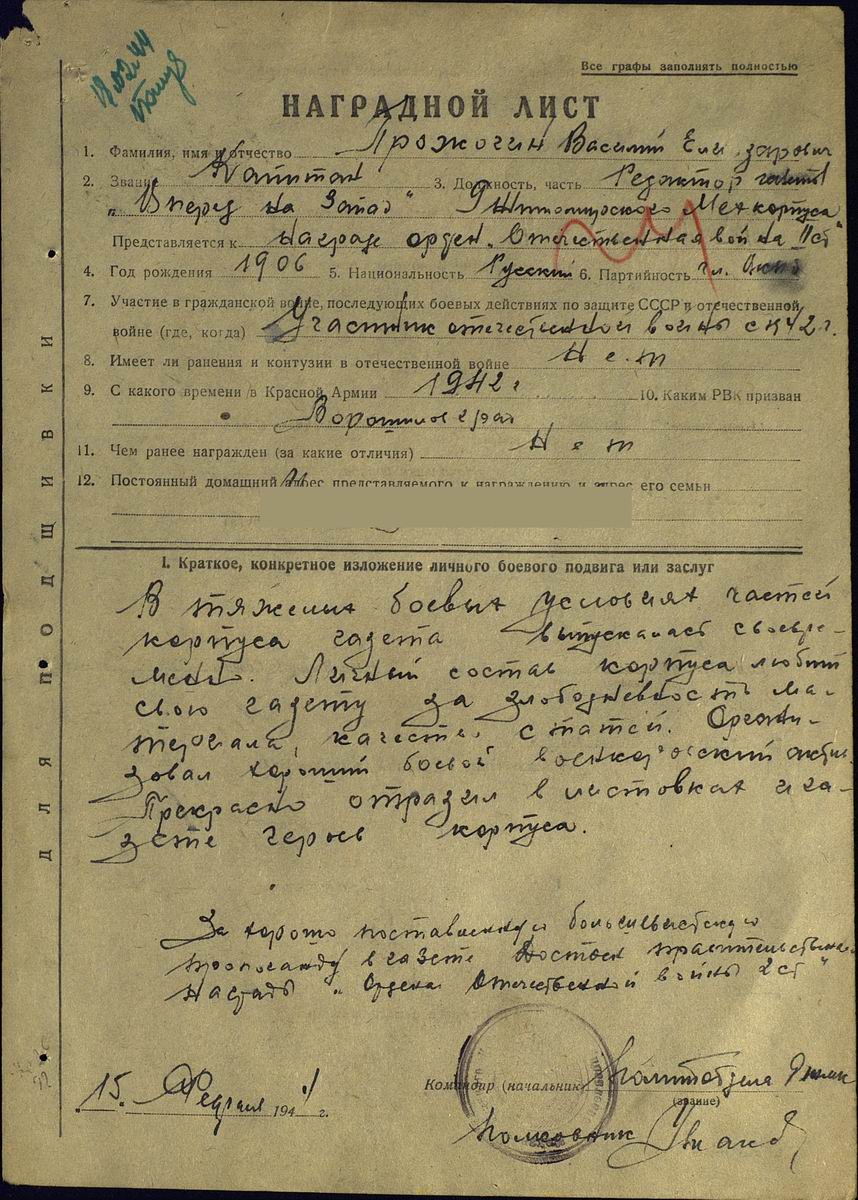 18.02.44
Все графы заполнять полностью
НАГРАДНОЙ ЛИСТ
1. Фамилия, имя и отчество Прожогин Василий Елизарович
2. Звание Капитан 3. Должность, часть Редактор газеты
"Вперед на Запад" 9 Житомирского Мехкорпуса
Представляется к награде орден "Отечественная война II ст"
4. Год рождения 1906 5. Национальность Русский 6. Партийность чл.
7. Участие в гражданской войне, последующих боевых действиях по защите СССР и отечественной
войне (где, когда) Участник отечественной войны с 1942 г.
8. Имеет ли ранения и контузии в отечественной войне Нет
9. С какого времени в Красной Армии 1942 г 10. Каким РВК призван
Ворошиловград
11. Чем ранее награжден (за какие отличия) Нет
12. Постоянный домашний адрес представляемого к награждению и адрес его семьи
I. Краткое, конкретное изложение личного боевого подвига или заслуг
В тяжелых боевых условиях частей
корпуса газета выпускалась своевре-
менно. Личный состав корпуса любит
свою газету за злободневность ма-
териала, качество статей. Органи-
зовал хороший боевой военкоровский актив.
Прекрасно отразил в листовках и га-
зете героев корпуса.
За хорошо поставленную большевистскую
пропаганду в газете достоин правительственной
награды "Ордена Отечественной войны 2 ст"
15. Февраля 1944 г.
Командир (начальник) Политотдела 9
(звание)
Полковник
ДЛЯ ПОДШИВКИ